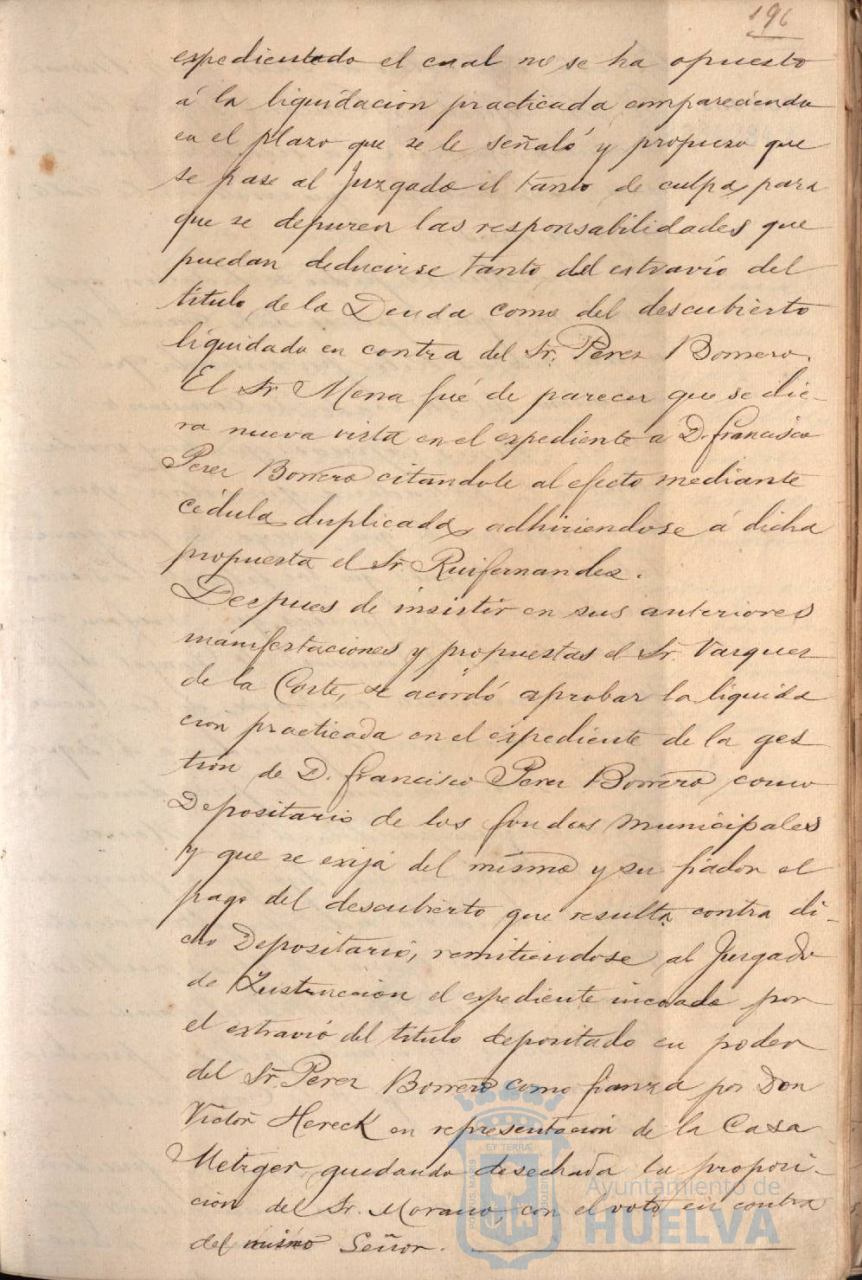 196
expedientado el cual no se ha opuesto
á la liquidacion practicada compareciendo
en el plazo que se le señaló y propuso que
se pase al Juzgado el tanto de culpa, para
que se depuren las responsabilidades que
puedan deducirse tanto del estravío del
título de la Deuda como del descubierto
liquidado en contra del Sr. Perez Borrero.
El Sr. Mena fué de parecer que se die-
ra nueva vista en el expediente a D. Francisco
Perez Borrero citandole al efecto mediante
cédula duplicada, adhiriendose á dicha
propuesta el Sr. Ruifernandez.
Decpues de insistir en sus anteriores
manifestaciones y propuestas el Sr. Vazquez
de la Corte, se acordó aprobar la liquida
cion practicada en el expediente de la ges
tion de D. Francisco Perez Borrero, como
Depositario de los fondos municipales
y que se exija del mismo y su fiador el
pago del descubierto que resulta contra di-
cho Depositario, remitiendose al Juzgado
de Instruccion el expediente incoado por
el extravío del título depositado en poder
del Sr. Perez Borrero como fianza por Don
Victor Hereck en representacion de la Casa
Metzger, quedando desechada la proposi-
cion del Sr. Morano, con el voto en contra
del mismo Señor.
PORTUS MARIS
ET TERRAE
CUSTODIA
Ayuntamiento de
HUELVA